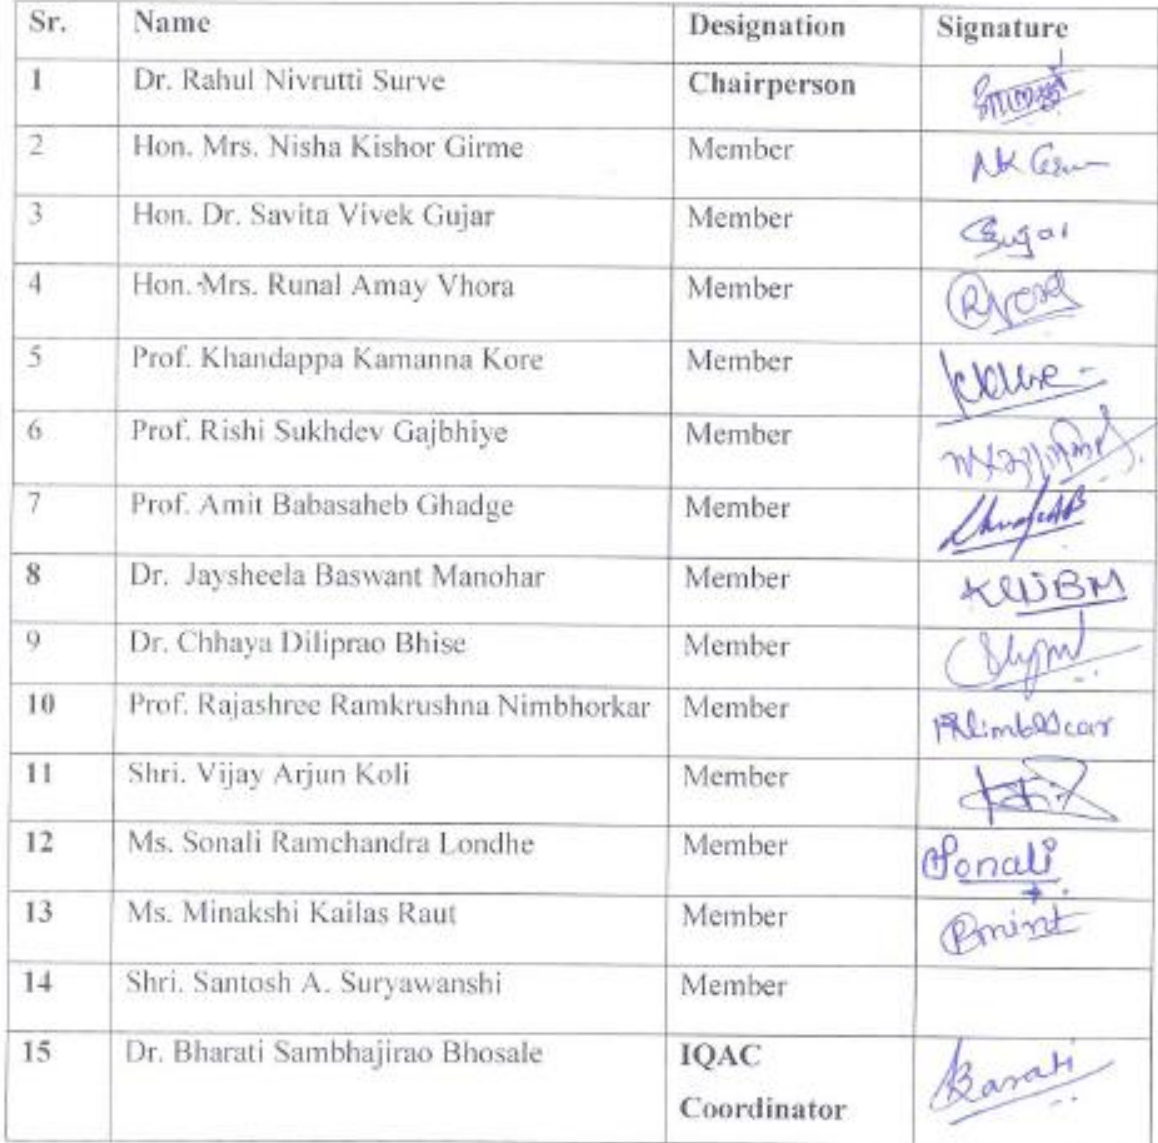 Sr. Name Designation Signature
1 Dr. Rahul Nivrutti Surve Chairperson
2 Hon. Mrs. Nisha Kishor Girme Member
3 Hon. Dr. Savita Vivek Gujar Member
4 Hon. Mrs. Runal Amay Vhora Member
5 Prof. Khandappa Kamanna Kore Member
6 Prof. Rishi Sukhdev Gajbhiye Member
7 Prof. Amit Babasaheb Ghadge Member
8 Dr. Jaysheela Baswant Manohar Member
9 Dr. Chhaya Diliprao Bhise Member
10 Prof. Rajashree Ramkrushna Nimbhorkar Member
11 Shri. Vijay Arjun Koli Member
12 Ms. Sonali Ramchandra Londhe Member Sonali
13 Ms. Minakshi Kailas Raut Member
14 Shri. Santosh A. Suryawanshi Member
15 Dr. Bharati Sambhajirao Bhosale IQAC
Coordinator